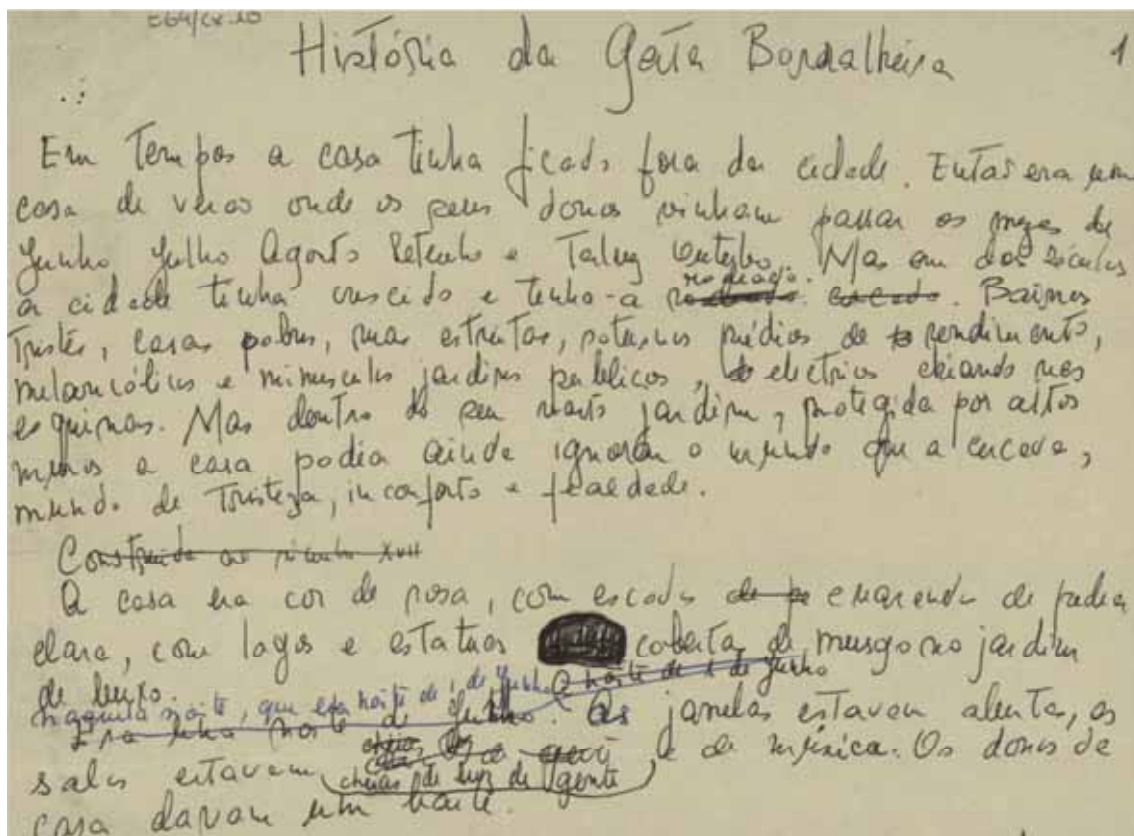 E64/cx.10
História da Gata Borralheira 1
Em tempos a casa tinha ficado fora da cidade. Então era uma
casa de verão onde os seus donos vinham passar os mezes de
Junho Julho Agosto Setembro e Talvez Outubro. Mas em dois séculos
rodeado.
a cidade tinha crescido e tinha-a cercado. Bairros
tristes, casas pobres, ruas estreitas, prédios de rendimento,
melancólicos e minusculos jardins publicos, electricos chiando nas
esquinas. Mas dentro do seu vasto jardim, protegida por altos
muros a casa podia ainda ignorar o mundo que a cercava,
mundo de Tristeza, inconforto e fealdade.
Construida no século XVII
A casa era cor de rosa, com escadas de e varandas de pedra
clara, com lagos e estatuas coberta de musgo no jardim
de buxo. A noite de 1 de Junho
Naquela noite, que era noite de 1 de Junho
Era uma noite de Junho. As janelas estavam abertas, as
cheias de luz de gente
salas estavam e de música. Os donos da
casa davam um baile.